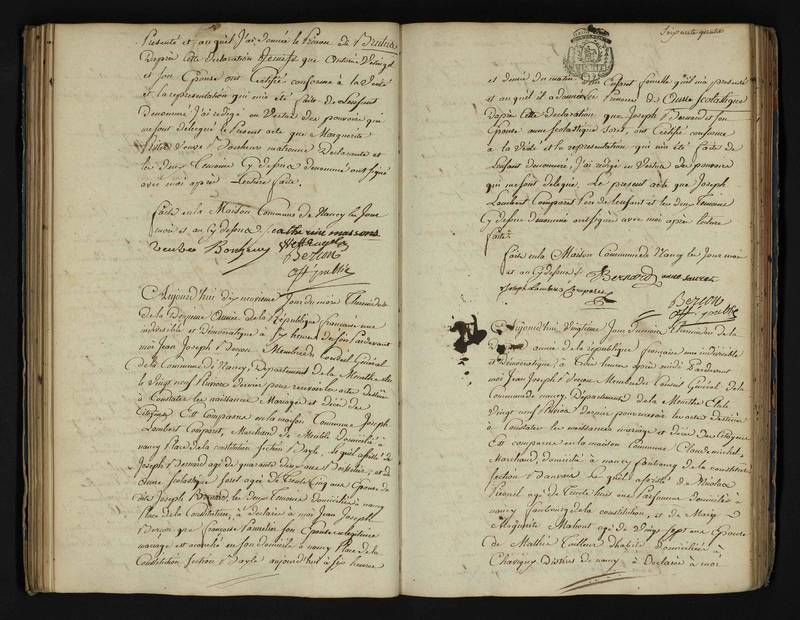 Presenté et auquel J'ai donnée le Prénom de Brutus
D'après cette déclaration
et son Epouse ont Certifié conforme à la Verité
et la representation qui m'a été faite de l'enfant
Denommé J'ai redigé en Vertu des pouvoirs qui
me sont délégué le Present acte que Marguerite
Veuve Bonheur matronne Declarante et
les deux Temoins Cy dessus denommé ont signé
avec moi après Lecture faite.
faite en la Maison Commune de Nancy les Jour
mois et an Cy dessus. Catherine
veuve Bonheur
Berson
off. public
Aujourd'hui dix neuvieme Jour du mois Thermidor
de la Deuxieme Année de la République française une
indivisible et Democratique à six heures de soir Pardevant
moi Jean Joseph Berson Membre du Conseil Général
de la Commune de Nancy, Departement de la Meurthe élu
le Vingt neuf Pluviose dernier pour recevoir les actes destinés
à Constater les naissances Mariages et décès des
Citoyens Est Comparu en la maison Commune Joseph
Lambert Comparet, Marchand de Meuble domicilié à
nancy Place de la constitution section Bayle, le quel assisté de
Joseph Bernard agé de quarante deux ans et de
Anne Scolastique Soret agée de Trente Cinq ans Epouse du
dit Joseph Bernard, les deux Temoins domicilié à nancy
Place de la Constitution, à déclaré à moi Jean Joseph
Berson que françoise son Epouse en légitime
mariage est accouché en son domicile à nancy Place de la
Constitution section Bayle aujourd'hui à six heures
et demie du matin d'un Enfant femelle qu'il m'a presenté
et auquel il a donné le Prenom de Anne Scolastique
D'après cette declaration que Joseph Bernard et son
Epouse anne Scolastique Soret, ont Certifié conforme
à la Vérité et la représentation qui m'a été faite de
l'enfant denommé, J'ai redigé en Vertu des pouvoirs
qui me sont délégué le present acte que Joseph
Lambert Comparet Pere de l'enfant et les deux Temoins
Cy dessus denommé ont signé avec moi après lecture
faite.
faite en la Maison Commune de Nancy les Jour mois
et an Cy dessus. Bernard anne
Joseph Lambert Comparet
Berson
off. public
Aujourd'hui vingtieme Jour du mois Thermidor de la
année de la république française une indivisible
et Democratique, à Trois heures après midi Pardevant
moi Jean Joseph Berson Membre du Conseil Général de la
Commune de nancy, Departement de la Meurthe Elu le
Vingt neuf Pluviose dernier pour recevoir les actes destinés
à Constater les naissances mariages et décès des Citoyens
Est comparu en la maison Commune Claude
Marchand, domicilié à nancy faubourg de la constitution
section le quel assisté de Nicolas
agé de Trente huit ans Parfumeur domicilié à
nancy faubourg de la constitution, et de Marie
Marguerite agé de Vingt sept ans Epouse
de Mathie Tailleur d'habits domiciliée à
Chavigny District de nancy à Declaré à moi